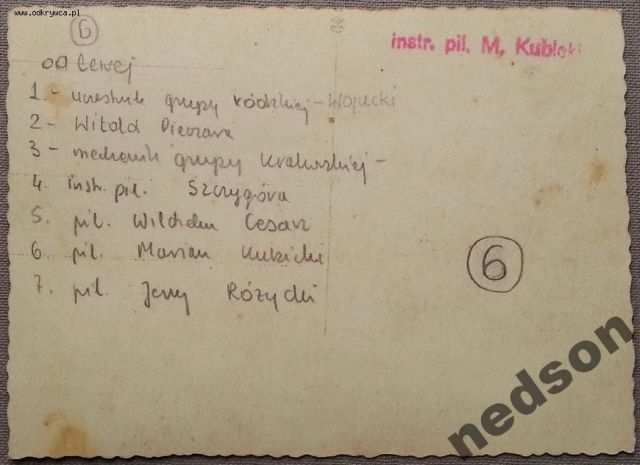 www.odkrywca.pl
6
instr. pil. M. Kubicki
od lewej
1 - uczestnik grupy łódzkiej - Wojucki
2 - Witold Pieczara
3 - mechanik grupy krakowskiej -
4. instr. pil. Szczygóra
5. pil. Wilchelm Cesarz
6. pil. Marian Kubicki
7. pil. Jerzy Różycki
6
nedson